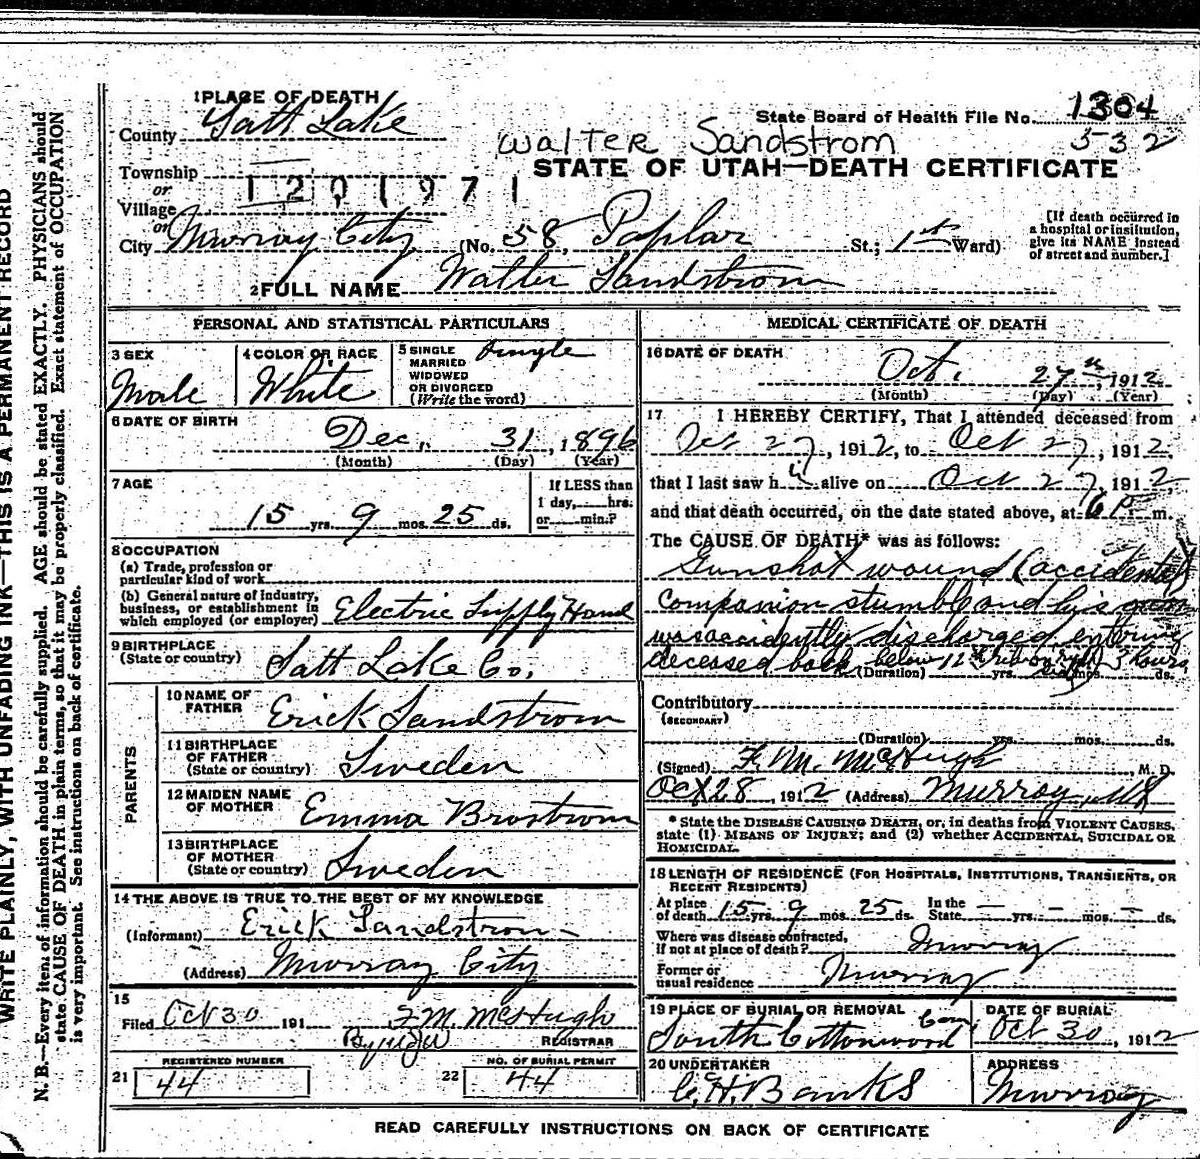 1 PLACE OF DEATH
County Salt Lake
State Board of Health File No. 1304
532
Walter Sandstrom
STATE OF UTAH—DEATH CERTIFICATE
Township
or
Village
1201971
or
City Murray City (No. 58, Poplar St.; 1st Ward)
[If death occurred in
a hospital or institution,
give its NAME instead
of street and number.]
2 FULL NAME Walter Sandstrom
PERSONAL AND STATISTICAL PARTICULARS
3 SEX
Male
4 COLOR OR RACE
White
5 SINGLE
MARRIED
WIDOWED
OR DIVORCED
(Write the word)
Single
6 DATE OF BIRTH
Dec. 31, 1896
(Month) (Day) (Year)
7 AGE
15 yrs. 9 mos. 25 ds.
If LESS than
1 day, hrs.
or min.?
8 OCCUPATION
(a) Trade, profession or
particular kind of work
(b) General nature of industry,
business, or establishment in
which employed (or employer) Electric Supply Hand
9 BIRTHPLACE
(State or country)
Salt Lake Co.
PARENTS
10 NAME OF
FATHER
Erick Sandstrom
11 BIRTHPLACE
OF FATHER
(State or country)
Sweden
12 MAIDEN NAME
OF MOTHER
Emma Brostrom
13 BIRTHPLACE
OF MOTHER
(State or country)
Sweden
14 THE ABOVE IS TRUE TO THE BEST OF MY KNOWLEDGE
(Informant) Erick Sandstrom
(Address) Murray City
15
Filed Oct 30 191 F.M. McHugh
REGISTRAR
By
REGISTERED NUMBER
21 44
NO. OF BURIAL PERMIT
22 44
MEDICAL CERTIFICATE OF DEATH
16 DATE OF DEATH
Oct. 27th, 1912
(Month) (Day) (Year)
17 I HEREBY CERTIFY, That I attended deceased from
Oct 27, 1912, to Oct 27, 1912,
that I last saw h alive on Oct 27, 1912
and that death occurred, on the date stated above, at 6 P. m.
The CAUSE OF DEATH* was as follows:
Gunshot wound (accidental)
Companion stumbled and his gun
was accidently discharged entering
deceased back below 12th rib on 3 hours
(Duration) yrs. mos. ds.
Contributory
(SECONDARY)
(Duration) yrs. mos. ds.
(Signed) F. M. McHugh, M. D.
Oct 28, 1912 (Address) Murray, Ut
* State the DISEASE CAUSING DEATH, or, in deaths from VIOLENT CAUSES,
state (1) MEANS OF INJURY; and (2) whether ACCIDENTAL, SUICIDAL OR
HOMICIDAL.
18 LENGTH OF RESIDENCE (FOR HOSPITALS, INSTITUTIONS, TRANSIENTS, OR
RECENT RESIDENTS)
At place
of death 15 yrs. 9 mos. 25 ds. In the
State — yrs. — mos. — ds.
Where was disease contracted,
if not at place of death? Murray
Former or
usual residence Murray
19 PLACE OF BURIAL OR REMOVAL
South Cottonwood Cem
DATE OF BURIAL
Oct 30, 1912
20 UNDERTAKER
C. H. Banks
ADDRESS
Murray
READ CAREFULLY INSTRUCTIONS ON BACK OF CERTIFICATE
WRITE PLAINLY, WITH UNFADING INK—THIS IS A PERMANENT RECORD
N. B.—Every item of information should be carefully supplied. AGE should be stated EXACTLY. PHYSICIANS should
state CAUSE OF DEATH in plain terms, so that it may be properly classified. Exact statement of OCCUPATION
is very important. See instructions on back of certificate.